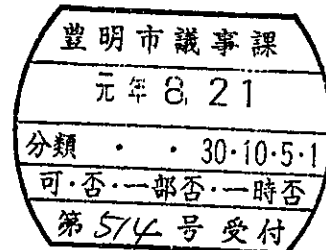 豊明市議事課
元年 8. 21
分類 ・ ・ 30・10・5・1
可・否・一部否・一時否
第 514 号 受付